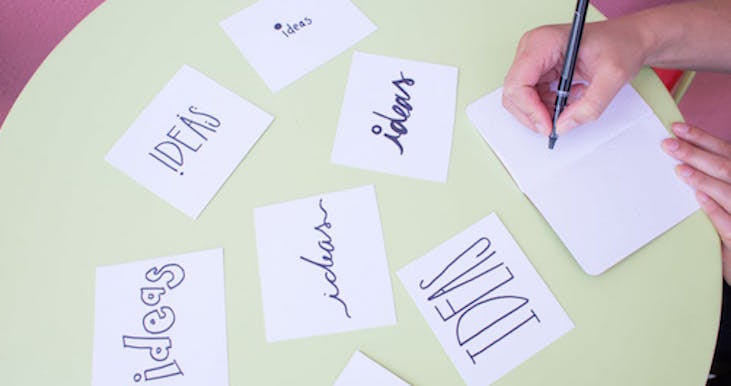 ideas
ideas
IDEAS
ideas
IDEAS
ideas